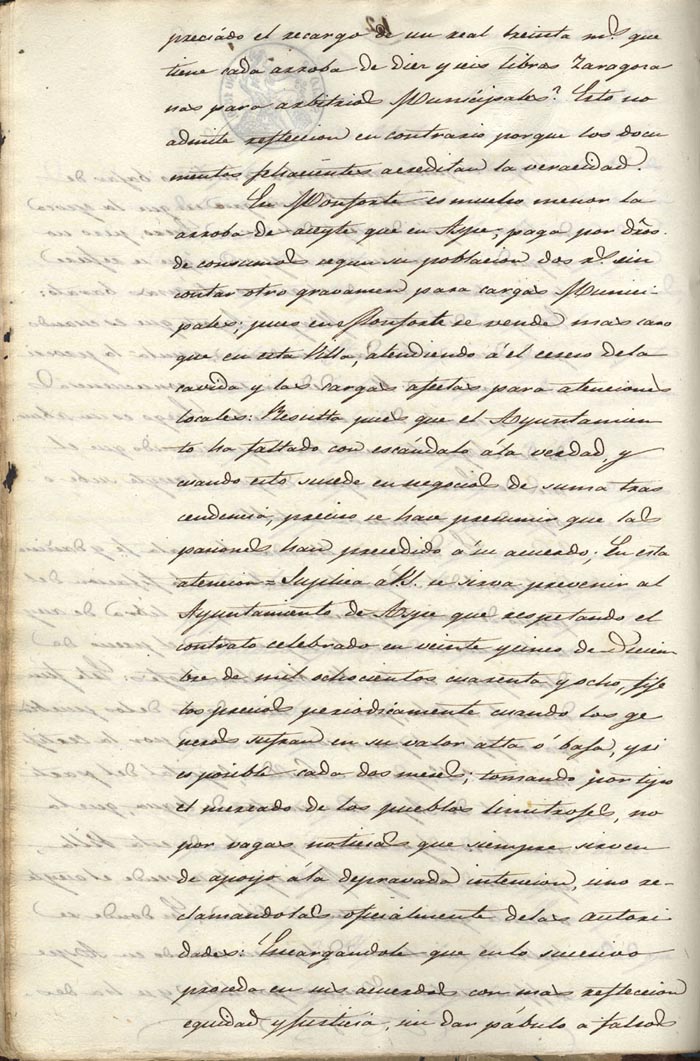 preciádo el recargo de un real treinta mˢ que
tiene cada arroba de diez y seis libras Zaragoza
nas para arbitrios Municipales? Esto no
admite refleccion en contrario porque los docu
mentos fehacientes acreditan la veracidad.
En Monforte es mucho menor la
arroba de aceyte que en Aspe; paga por dr̃os.
de consumos segun su poblacion dos rˢ sin
contar otro gravamen para cargas Munici-
pales; pues en Monforte se vende mas caro
que en esta Villa, atendiendo á el ceseso de la
cavida y las cargas afectas para atenciones
locales: Resulta pues que el Ayuntamien
to ha faltado con escándalo á la verdad, y
cuando esto sucede en negocios de suma tras
cendencia, preciso se hace presumir que las
pasiones han precedido á su acuerdo; En esta
atencion = Suplica á V. se sirva prevenir al
Ayuntamiento de Aspe que respetando el
contrato celebrado en veinte y cinco de Diciem
bre de mil ochocientos cuarenta y ocho, fije
los precios periodicamente cuando los ge
neros sufran en su valor alta ó baja, y si
es posible cada dos meses; tomando por tipo
el mercado de los pueblos limitrofes, no
por vagas noticias que siempre sirven
de apoyo á la depravada intencion, sino re
clamandolas oficialmente de las autori
dades: Encargandole que en lo sucesivo
proceda en sus acuerdos con mas refleccion
equidad y Justicia, sin dar pábulo a falsos